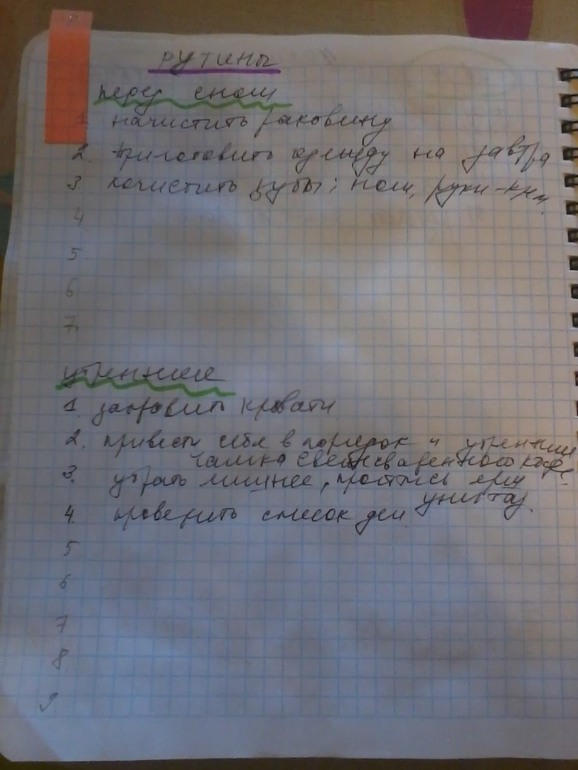 рутины
перед сном
1 начистить раковину
2 приготовить одежду на завтра
3 почистить зубы; ноги, руки-крем
4
5
6
7
утренние
1. заправить кровати
2. привести себя в порядок и утренняя
чашка свежесваренного кофе
3. убрать лишнее,
унитаз.
4. проверить список дел
5
6
7
8
9